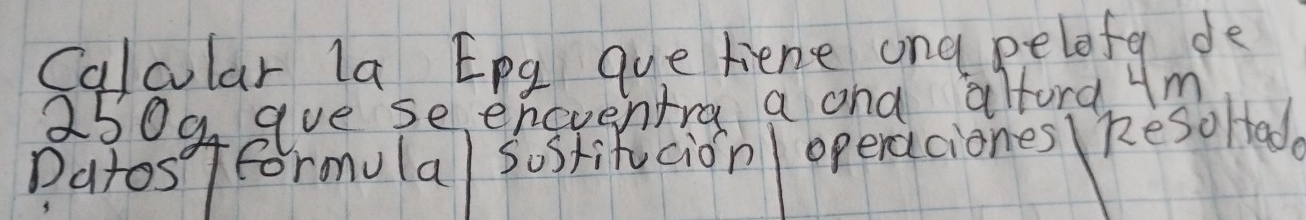 Calcular la Epg que tiene una pelota de
250g que se encuentra a una altura 4m
Datos | formula | sustitución | operaciones | Resultado